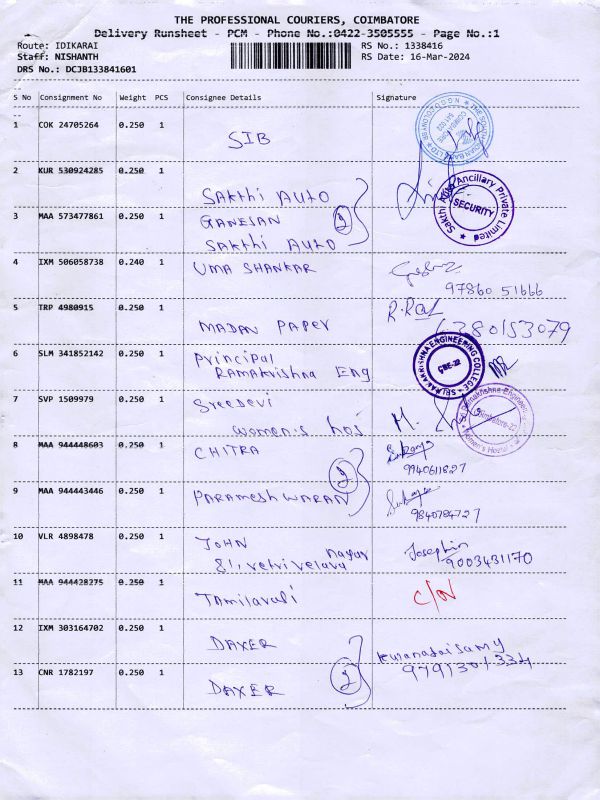 THE PROFESSIONAL COURIERS, COIMBATORE
Delivery Runsheet - PCM - Phone No.:0422-3505555 - Page No.:1
Route: IDIKARAI RS No.: 1338416
Staff: NISHANTH RS Date: 16-Mar-2024
DRS No.: DCJB133841601
S No Consignment No Weight PCS Consignee Details Signature
1 COK 24705264 0.250 1 SIB
2 KUR 530924285 0.250 1 SAKthi AUtO
3 MAA 573477861 0.250 1 GANESAN
SAKthi AUtO
2
Sakthi Auto Ancillary Private Limited
SECURITY
4 IXM 506058738 0.240 1 UMA SHANKAR
97860 51666
5 TRP 4980915 0.250 1 MADAN PAPer R.Raj
6380153079
6 SLM 341852142 0.250 1 Principal
RAMAKrishna ENg
SRI RAMAKRISHNA ENGINEERING COLLEGE
CBE-22
7 SVP 1509979 0.250 1 Sreedevi
women's hos
Coimbatore-22
8 MAA 944448603 0.250 1 CHITRA
9940611827
9 MAA 944443446 0.250 1 PARAMESHWARAN
2
9840784727
10 VLR 4898478 0.250 1 JOHN nagar Josephin
9003431170
11 MAA 944428275 0.250 1 C/N
12 IXM 303164702 0.250 1 DAXER
13 CNR 1782197 0.250 1 DAXER
2
9791301334